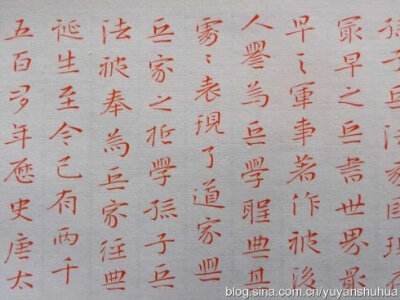 孫子兵法我国現存
最早之兵書世界最
早之軍事著作被後
人譽為兵學聖典且
處〻表現了道家與
兵家之哲學孫子兵
法被奉為兵家經典
誕生至今已有兩千
五百多年歷史唐太
blog.sina.com.cn/yuyanshuhua